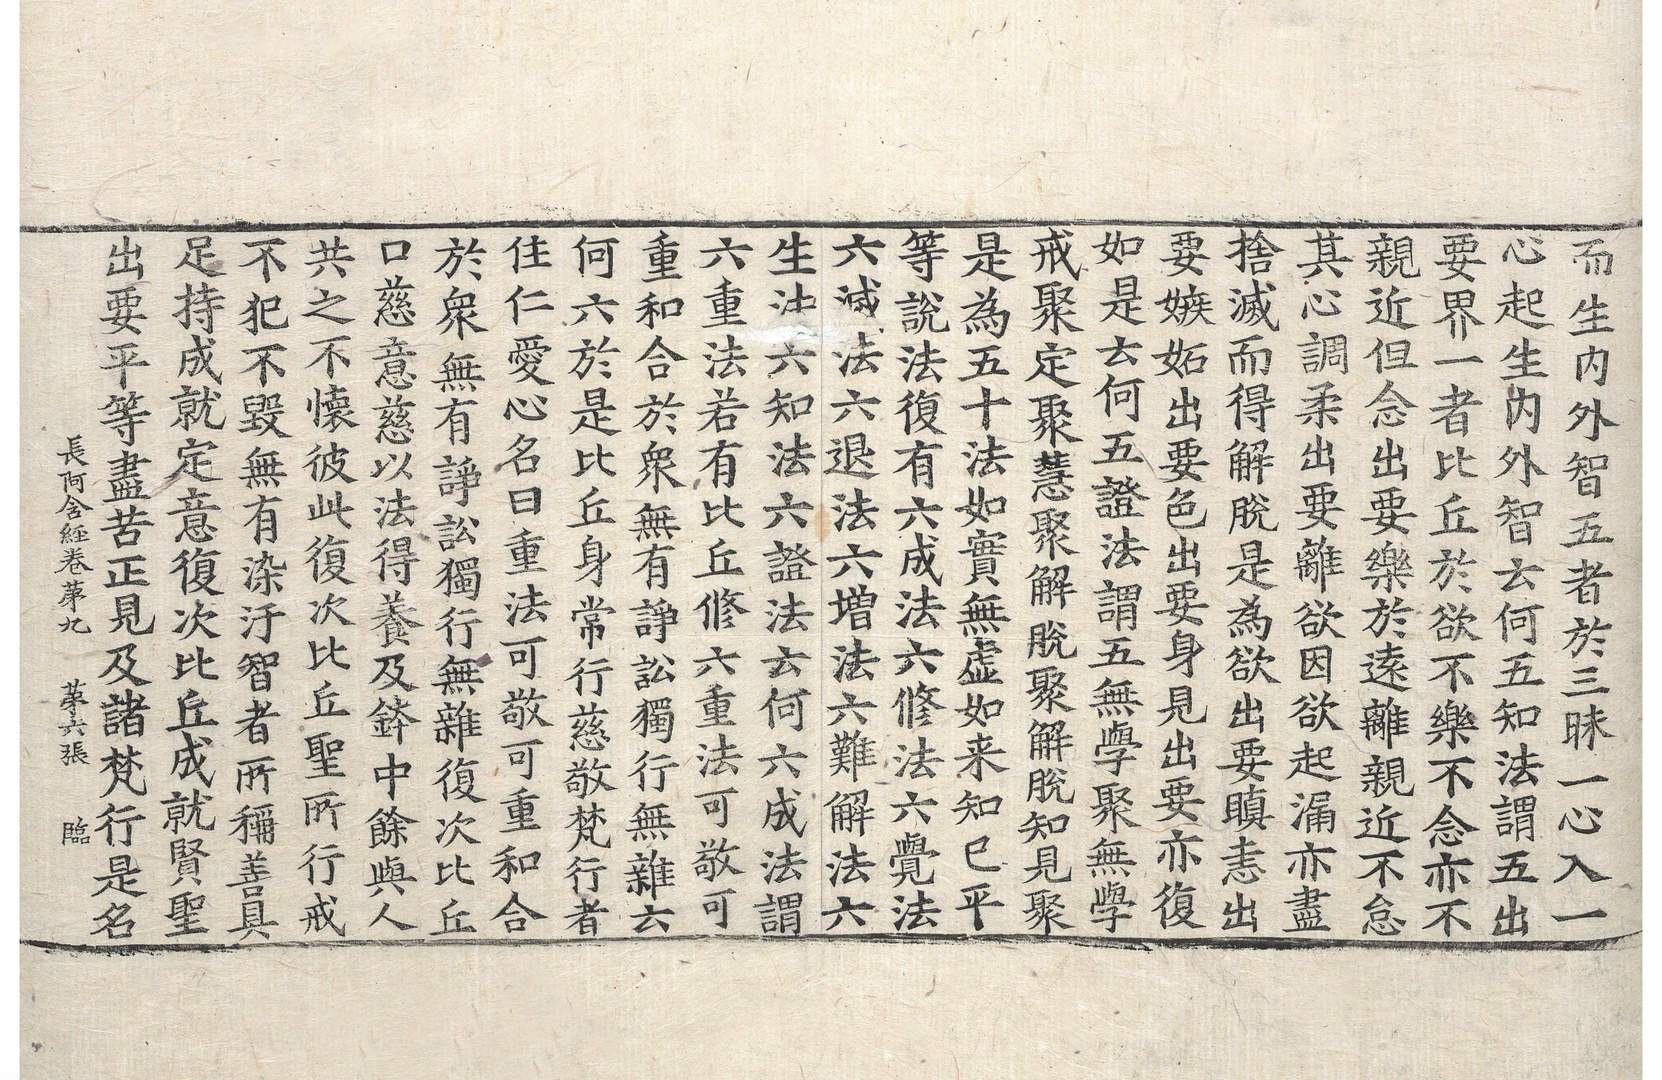 而生内外智五者於三昧一心入一
心起生内外智云何五知法謂五出
要界一者比丘於欲不樂不念亦不
親近但念出要樂於遠離親近不怠
其心調柔出要離欲因欲起漏亦盡
捨滅而得解脫是為欲出要瞋恚出
要嫉妬出要色出要身見出要亦復
如是云何五證法謂五無學聚無學
戒聚定聚慧聚解脫聚解脫知見聚
是為五十法如實無虛如来知已平
等說法復有六成法六修法六覺法
六滅法六退法六增法六難解法六
生法六知法六證法云何六成法謂
六重法若有比丘修六重法可敬可
重和合於衆無有諍訟獨行無雜六
何六於是比丘身常行慈敬梵行者
住仁愛心名曰重法可敬可重和合
於衆無有諍訟獨行無雜復次比丘
口慈意慈以法得養及鉢中餘與人
共之不懷彼此復次比丘聖所行戒
不犯不毀無有染汙智者所稱善具
足持成就定意復次比丘成就賢聖
出要平等盡苦正見及諸梵行是名
長阿含經卷第九 第六張 臨